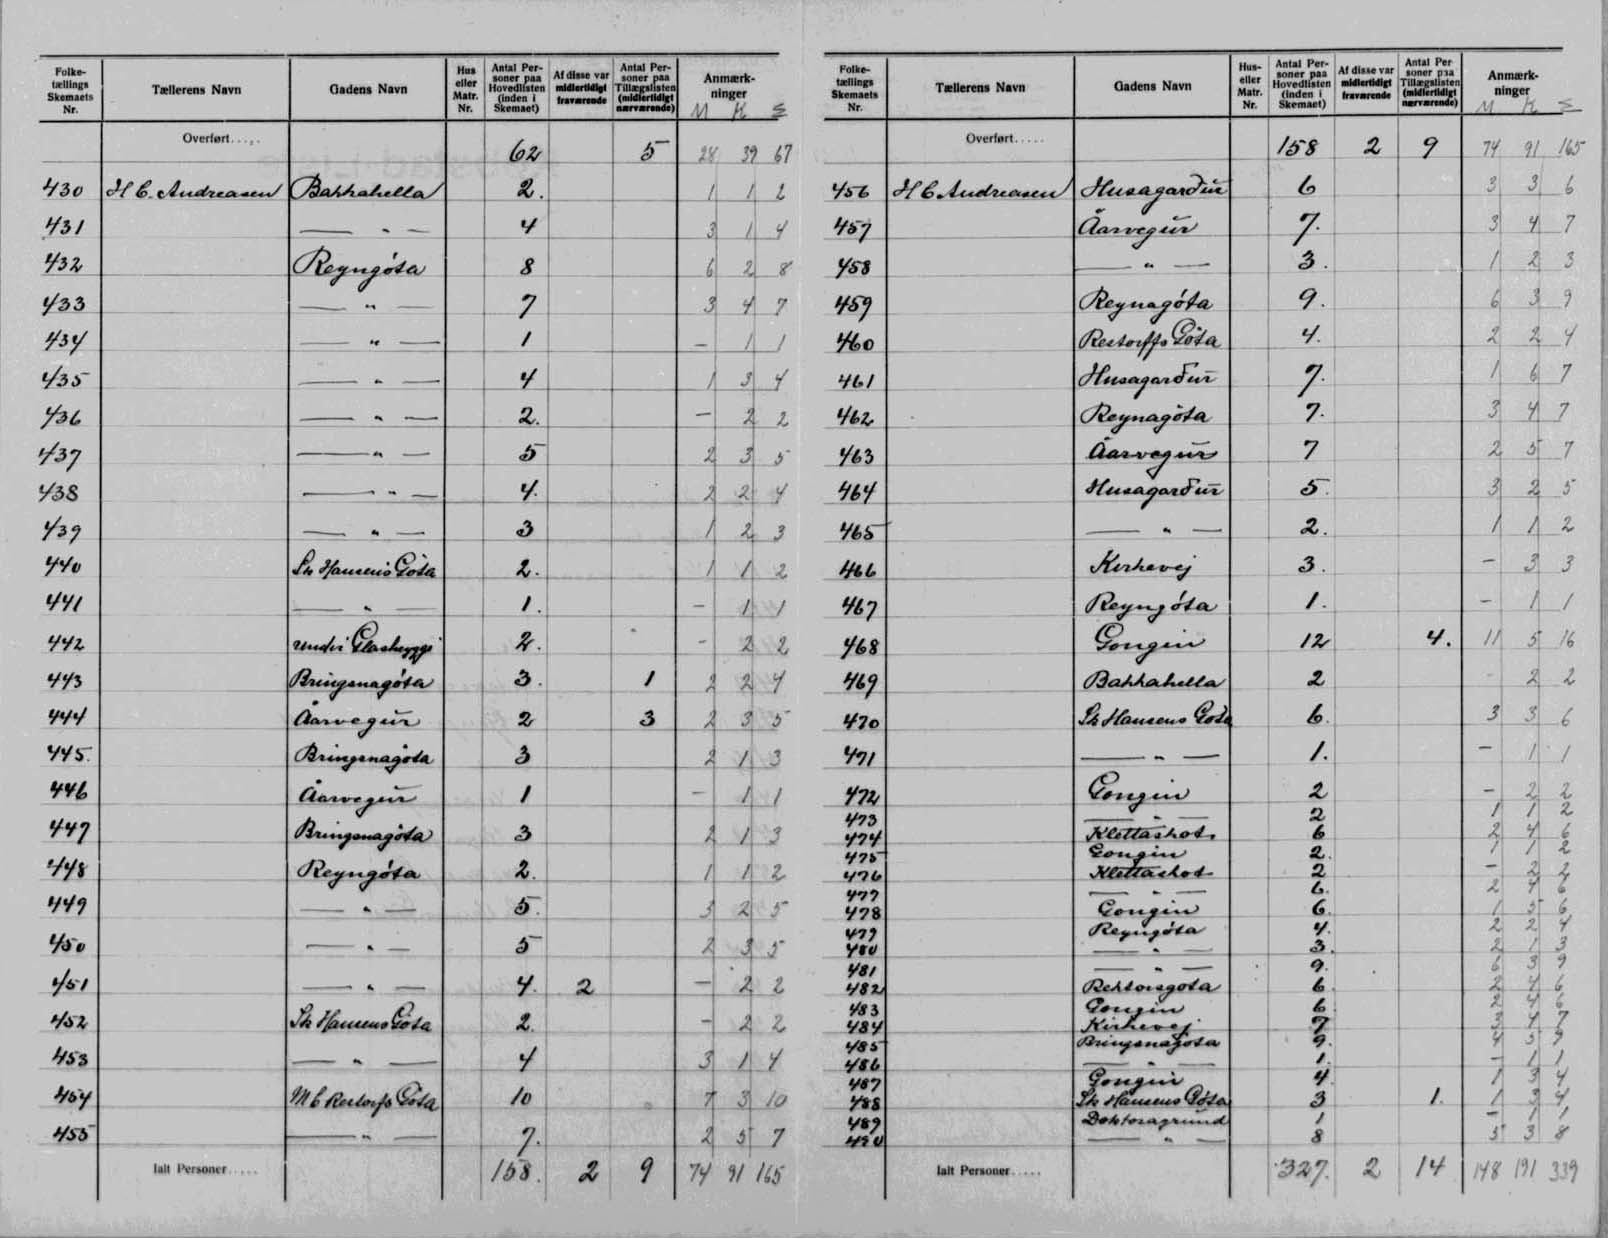 Folke-tællings Skemaets Nr. | Tællerens Navn | Gadens Navn | Hus eller Matr. Nr. | Antal Personer paa Hovedlisten (inden i Skemaet) | Af disse var midlertidigt fraværende | Antal Personer paa Tillægslisten (midlertidigt nærværende) | Anmærk-ninger M K S
Overført..... 62 5 28 39 67
430 H C. Andreasen Bakkahella 2. 1 1 2
431 — „ — 4 3 1 4
432 Reyngóta 8 6 2 8
433 — „ — 7 3 4 7
434 — „ — 1 — 1 1
435 — „ — 4 1 3 4
436 — „ — 2. — 2 2
437 — „ — 5 2 3 5
438 — „ — 4. 2 2 4
439 — „ — 3 1 2 3
440 Sk Hansens Góta 2. 1 1 2
441 — „ — 1. — 1 1
442 undir 2. - 2 2
443 Bringsnagóta 3. 1 2 2 4
444 Åarvegur 2 3 2 3 5
445. Bringsnagóta 3 2 1 3
446 Åarvegur 1 — 1 1
447 Bringsnagóta 3 2 1 3
448 Reyngóta 2. 1 1 2
449 — „ — 5. 3 2 5
450 — „ — 5 2 3 5
451 — „ — 4. 2 — 2 2
452 Sk Hansens Góta 2. — 2 2
453 — „ — 4 3 1 4
454 M C Restorfs Góta 10 7 3 10
455 — „ — 7. 2 5 7
Ialt Personer..... 158. 2 9 74 91 165
Folke-tællings Skemaets Nr. | Tællerens Navn | Gadens Navn | Hus-eller Matr. Nr. | Antal Personer paa Hovedlisten (inden i Skemaet) | Af disse var midlertidigt fraværende | Antal Personer paa Tillægslisten (midlertidigt nærværende) | Anmærk-ninger M K S
Overført..... 158 2 9 74 91 165
456 H C Andreasen Husagarður 6 3 3 6
457 Åarvegur 7. 3 4 7
458 — „ — 3. 1 2 3
459 Reynagóta 9. 6 3 9
460 Restorffs Góta 4. 2 2 4
461 Husagarður 7. 1 6 7
462 Reynagóta 7. 3 4 7
463 Åarvegur 7 2 5 7
464 Husagarður 5. 3 2 5
465 — „ — 2. 1 1 2
466 Kirkevej 3. — 3 3
467 Reyngóta 1. — 1 1
468 Gongin 12 4. 11 5 16
469 Bakkahella 2 - 2 2
470 Sk Hansens Góta 6. 3 3 6
471 — „ — 1. — 1 1
472 Gongin 2 — 2 2
473 — „ — 2 1 1 2
474 Klettaskot. 6 2 4 6
475 Gongin 2. 1 1 2
476 Klettaskot 2 — 2 2
477 — „ — 6. 2 4 6
478 Gongin 6. 1 5 6
479 Reyngóta 4. 2 2 4
480 — „ — 3. 2 1 3
481 — „ — 9. 6 3 9
482 Rektorsgota 6. 2 4 6
483 Gongin 6. 2 4 6
484 Kirkevej 7 3 4 7
485 Bringsnagóta 9. 4 5 9
486 — „ — 1. — 1 1
487 Gongin 4. 1 3 4
488 Sk Hansens Góta 3 1. 1 3 4
489 Doktaragrund 1 — 1 1
490 — „ — 8 5 3 8
Ialt Personer..... 327. 2 14 148 191 339